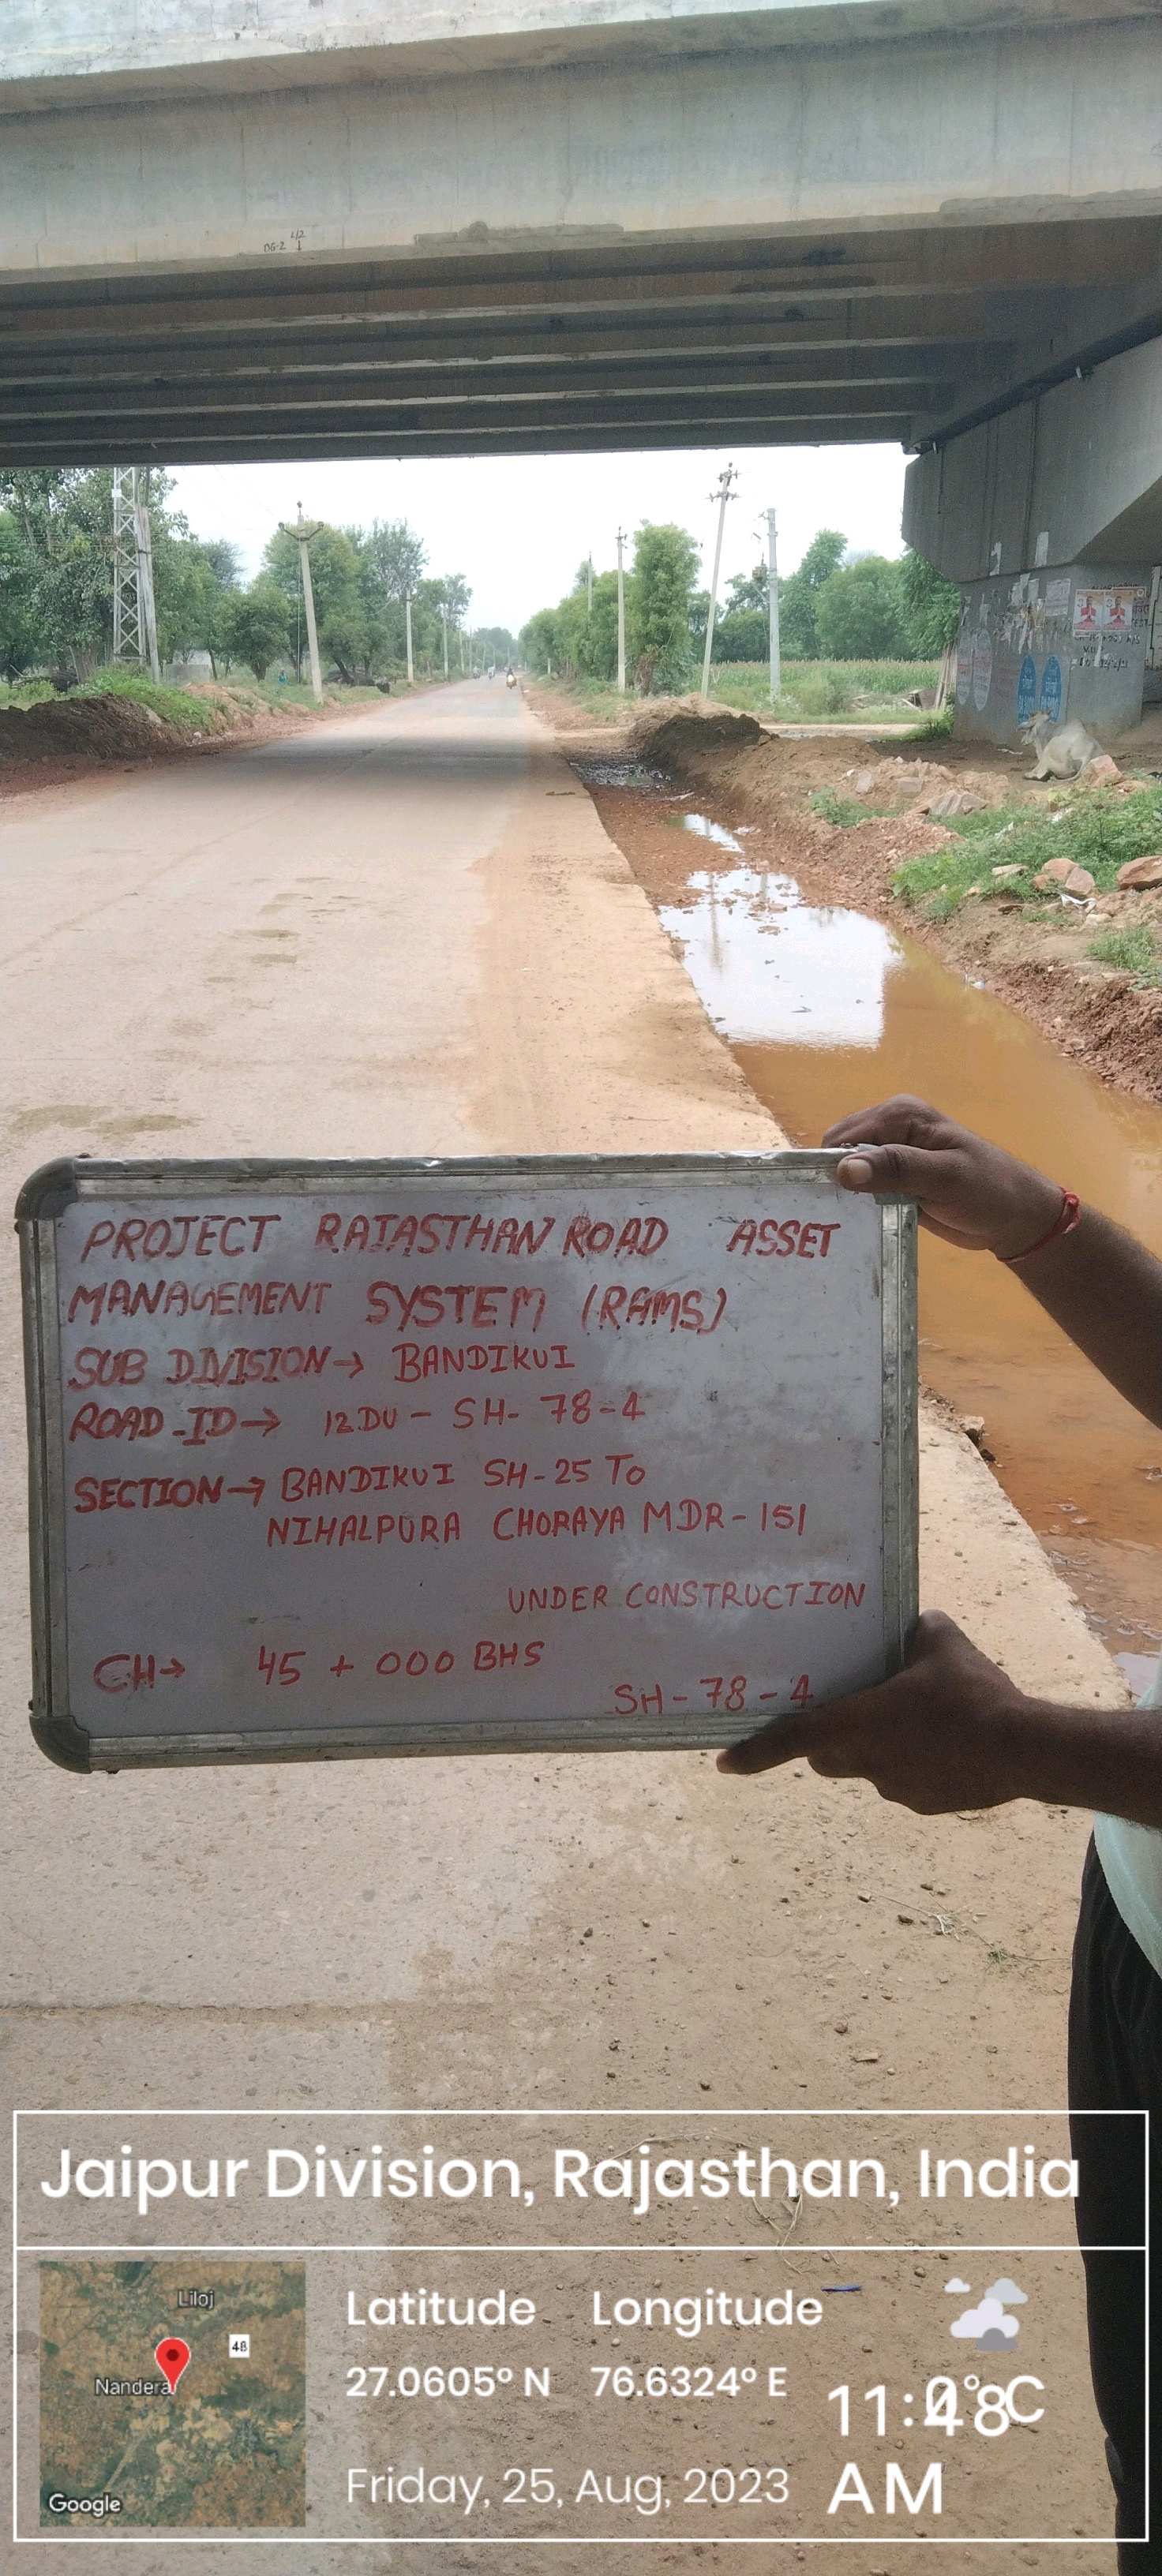 DG-2 L/2
PROJECT RAJASTHAN ROAD ASSET
MANAGEMENT SYSTEM (RAMS)
SUB DIVISION→ BANDIKUI
ROAD-ID→ 12DU- SH- 78-4
SECTION→ BANDIKUI SH-25 TO
NIHALPURA CHORAYA MDR-151
UNDER CONSTRUCTION
CH→ 45 + 000 BHS
SH-78-4
Jaipur Division, Rajasthan, India
Liloj
48
Nandera
Google
Latitude Longitude
27.0605° N 76.6324° E
0°C
11:48 AM
Friday, 25, Aug, 2023